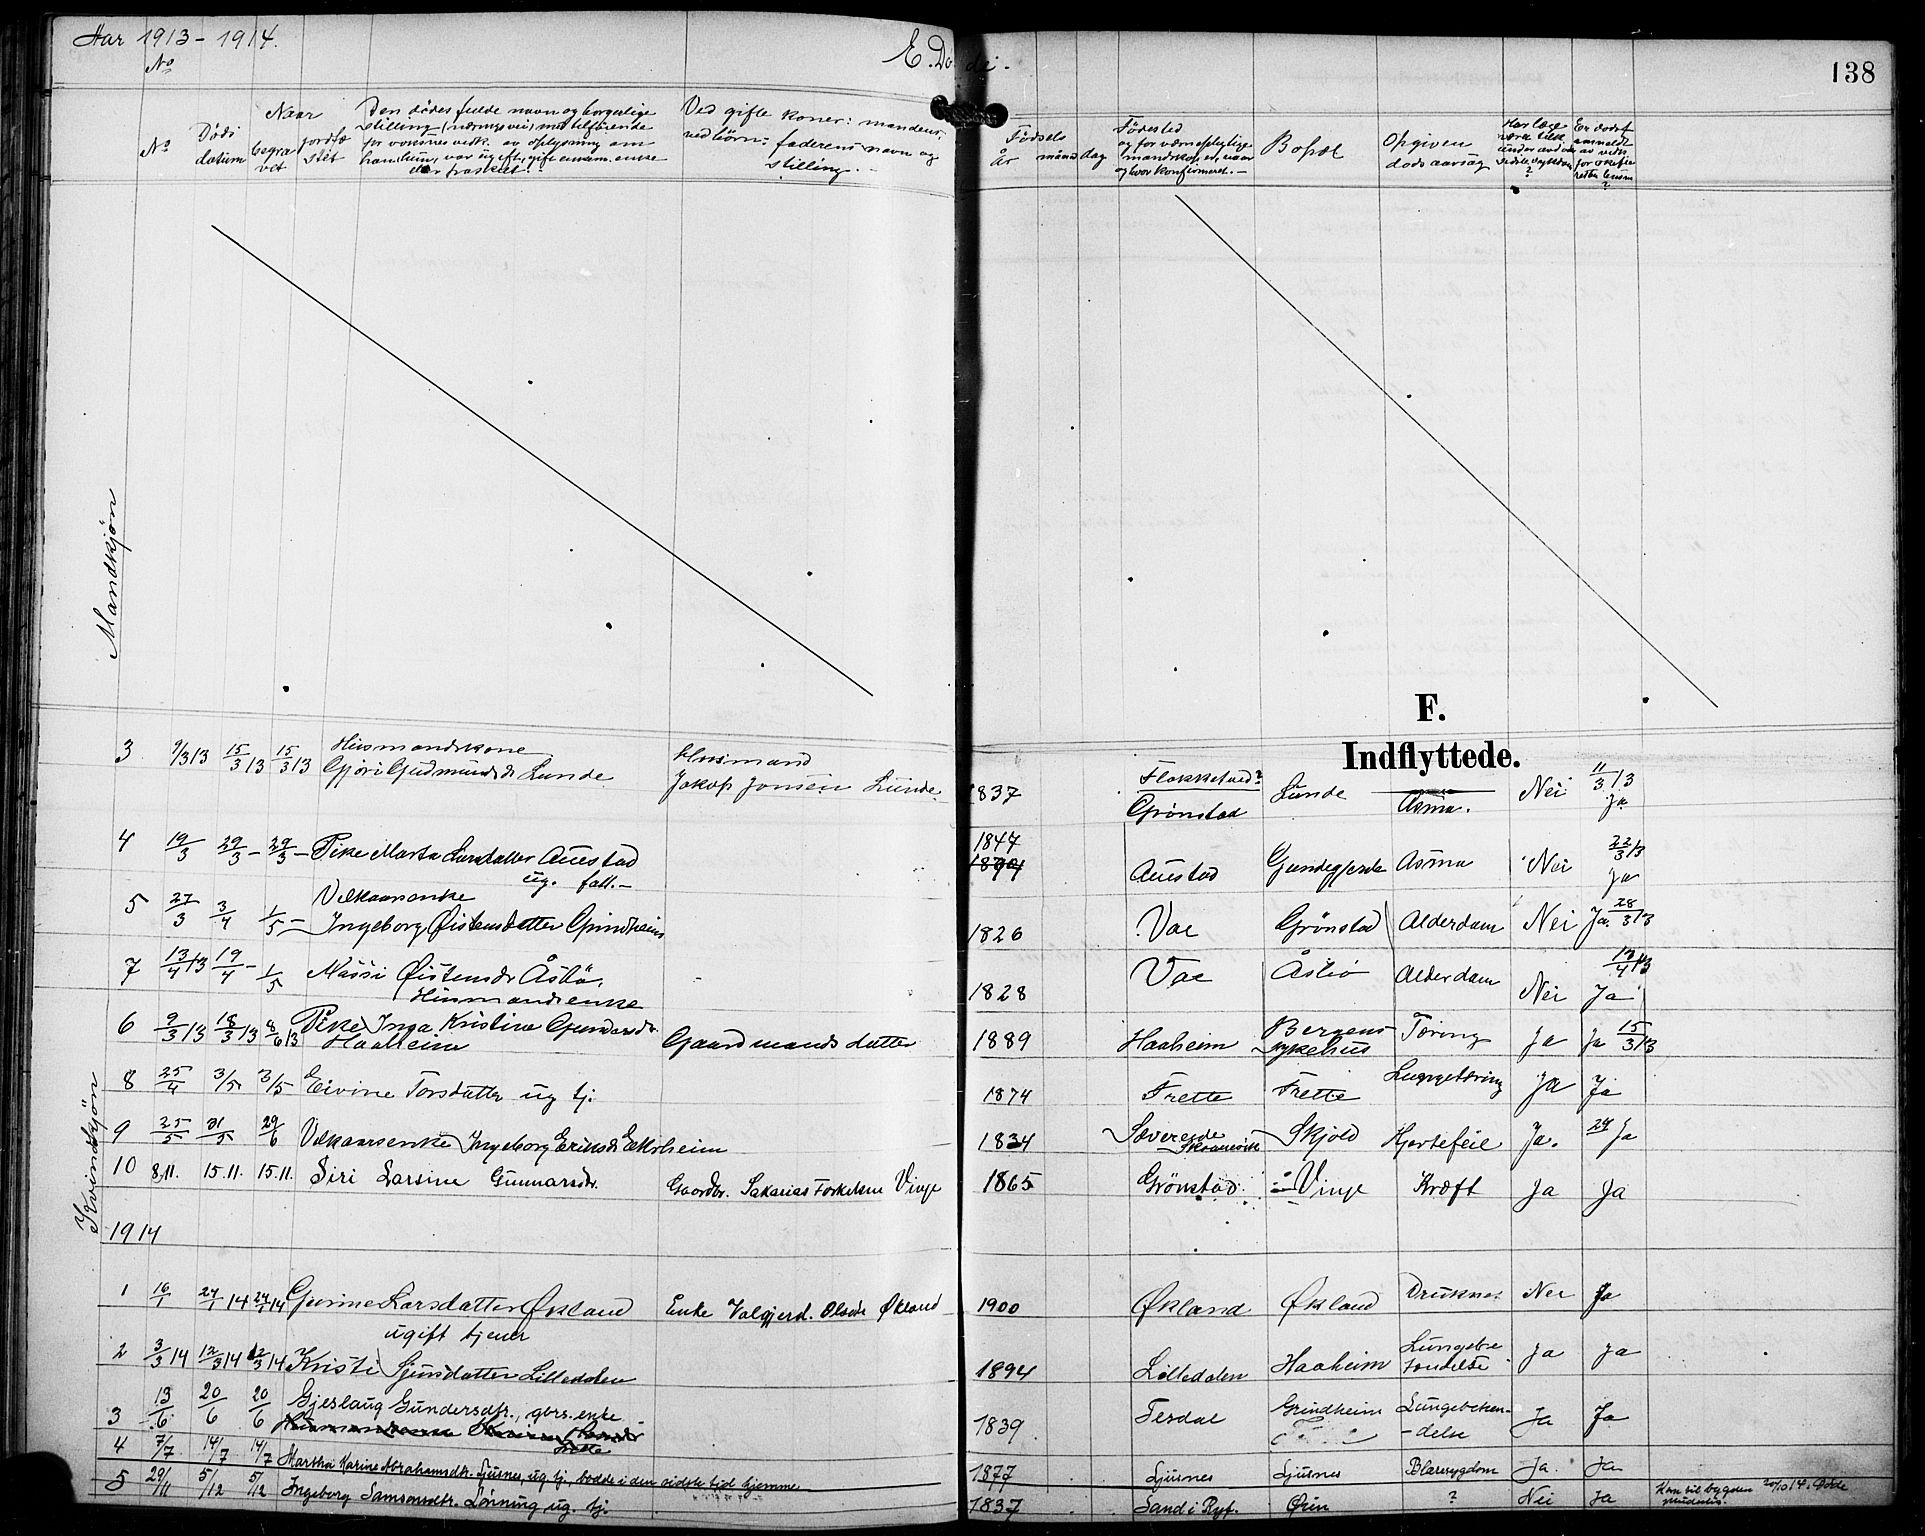 Aar 1913-1914.
E. Døde.
138
No
No
Døds datum
Naar
begravet
jordfæstet
Den dødes fulde navn og borgerlige
stilling (næringsvei) med tilføiende
for voksnes vedk. av oplysning om
Ved gifte koner: mandens,
ved børn: faderens navn og
stilling.
Fødsels
år måned dag
Fødested
og for værnepligtige
mandskaper, naar
og hvor konfirmeret.
Bopæl
Opgiven
dødsaarsag
Mandkjøn
F.
Indflyttede.
3 9/3 13 15/3 13 15/3 13 Husmandskone
Gjøri Gudmundsd. Lunde Husmand
Jakop Jonsen Lunde 1837 Flokketved?
Grønstad Lunde Asma. Nei 11/3 13
Ja
4 19/3 29/3 - 29/3 - Pike Marta Larsdatter Austad
ug. fatt. - 1847 Austad Asma Nei 22/3 13
Ja
5 27/3 3/4 1/5 - Vilkaarsenke
Ingeborg Øistensdatter Grindheim 1826 Vae Grønstad Alderdom Nei Ja. 28/3 13
7 13/4 13 19/4 - 1/5 Massi Øistensdr Åsbø,
Husmandsenke 1828 Vae Åsbø Alderdom Nei Ja
6 9/3 13 18/3 13 8/6 13 Pike Inga Kristine Gunarsdr.
Haaheim Gaardmands datter 1889 Haaheim Bergens
sykehus Tæring Ja Ja 15/3 13
Kvindkjøn
8 25/4 3/5 3/5 Eivine Torsdatter ug tj. 1874 Frette Frette Lungetæring Ja Ja
9 25/5 31/5 29/6 Vilkaarsenke Ingeborg Eriksd. Ekkrheim 1834 Skjold Hjertefeil Ja. Ja
10 8/11. 15.11. 15.11. Siri Larsine Gunnarsdr. Gaardbr. Sakarias Torkelsen Vinje 1865 Grønstad Vinje Kræft Ja Ja
1914
1 16/1 24/1 14 24/1 14 Gjurine Larsdatter Økland Enke Valgjerd. Olsdr Økland 1900 Økland Økland Druknet Nei Ja
ugift tjener
2 3/3 14 12/3 14 12/3 14 Kristi Sjursdatter Lilledalen 1894 Lilledalen Haaheim Lungebe
tændelse Ja Ja
3 13/6 20/6 20/6 Gjeslaug Gundersdtr., gbrs. enke 1839 Tesdal Grindheim Lungebetæn-
-delse Ja Ja
4 7/7 14/7 14/7 Martha Karine Abrahamsdtr. Ljusnes, ug. tj. bodde i den sidste tid hjemme 1877 Ljusnes Ljusnes Blæresygdom Ja. Ja
5 29/11 5/12 5/12 Ingeborg Samsonsdtr. Lønning ug. tj. 1837 Sand i Ryf. Øren ? Nei Ja Kom til bygden 20/10 14. Døde